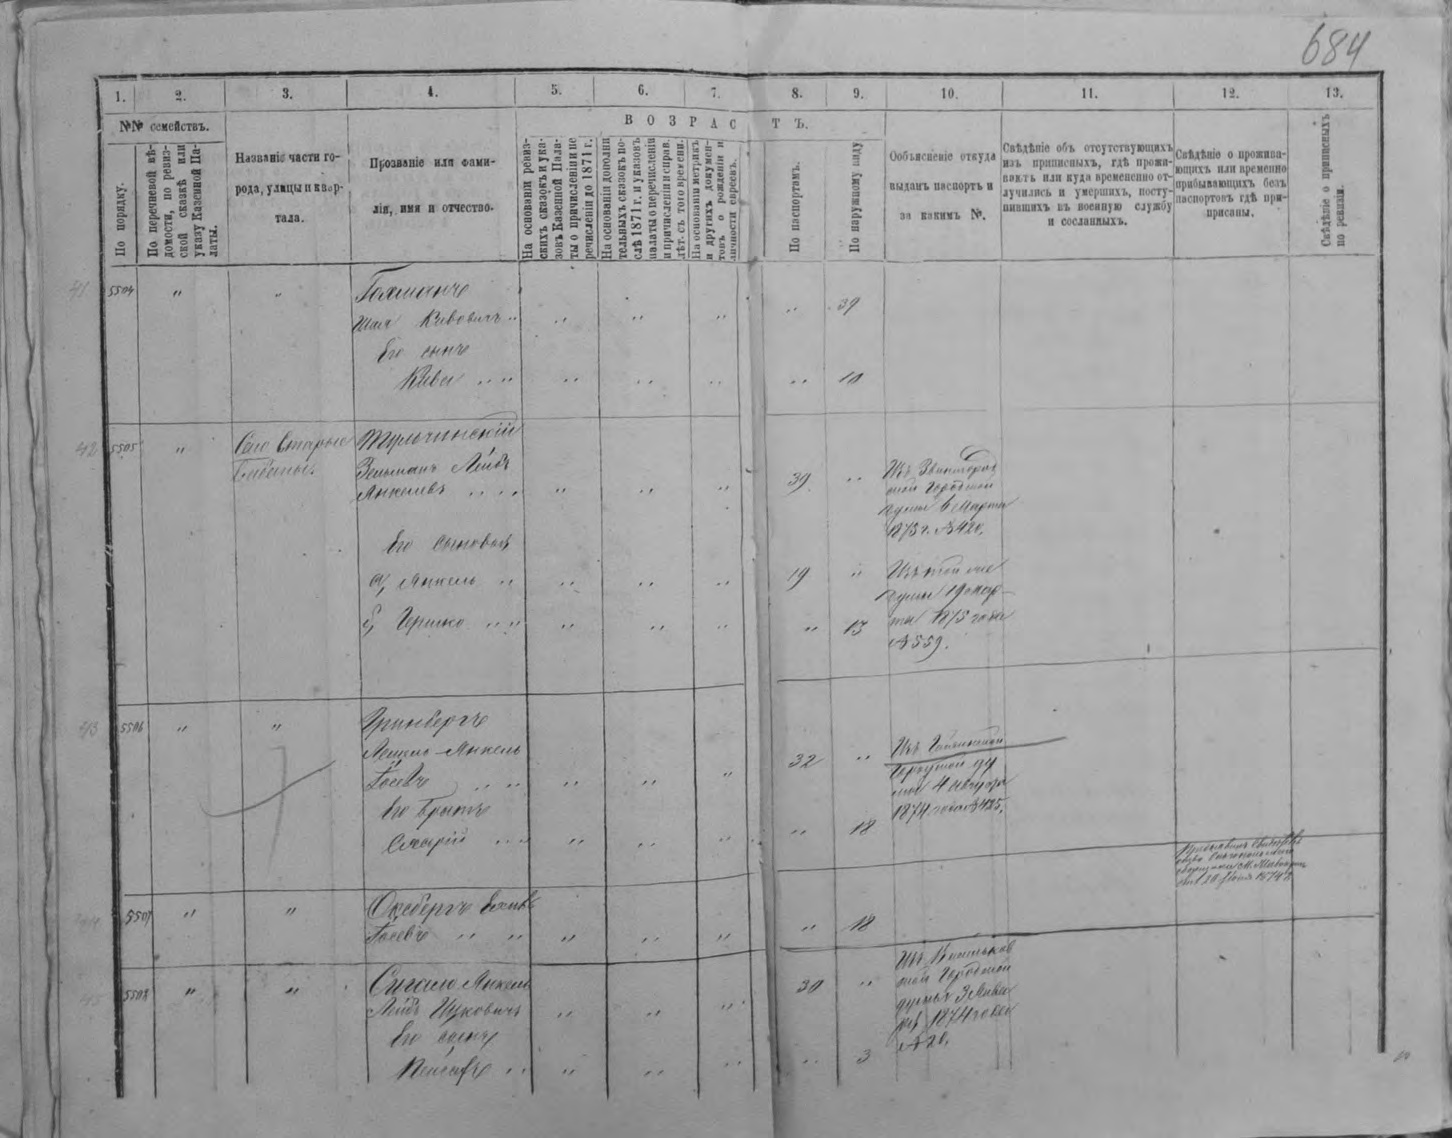 684
1. 2. 3. 4. 5. 6. 7. 8. 9. 10. 11. 12. 13.
№№ семействъ.
ВОЗРАСТЪ.
По порядку.
По перечневой вѣ-
домости, по ревиз-
ской сказкѣ или
указу Казенной Па-
латы.
Названіе части го-
рода, улицы и квар-
тала.
Прозваніе или фами-
лія, имя и отчество.
На основаніи ревиз-
скихъ сказокъ и ука-
зовъ Казенной Пала-
ты о причисленіи и пе
речисленіи до 1871 г.
На основаніи дополни
тельныхъ сказокъ по-
слѣ 1871 г. и указовъ
палаты о перечисленіи
и причисленіи и справ.
лѣт. съ того времени.
На основаніи метрикъ
и другихъ докумен-
товъ о рожденіи и
личности евреевъ.
По паспортамъ.
По наружному виду
Объясненіе откуда
выданъ паспортъ и
за какимъ №.
Свѣдѣніе объ отсутствующихъ
изъ приписныхъ, гдѣ прожи-
ваютъ или куда временно от-
лучились и умершихъ, посту-
пившихъ въ военную службу
и сосланныхъ.
Свѣдѣніе о прожива-
ющихъ или временно
прибывающихъ безъ
паспортовъ гдѣ при-
писаны.
Свѣдѣніе о приписныхъ
по ревизіи.
41 5504 " " Гохманъ
Шая Кивовичъ " " " " " 39
Его сынъ
Кива " " " " " " 10
42 5505 " Село Старые
Бабаны.
Тульчинскій
Зельманъ Лейбъ
Янкелевъ " " " " 39 "
Изъ Звенигород
ской Городской
думы 6 Марта
1875 г. №420.
Его сыновья
а, Янкель " " " " 19 "
б, Гершко " " " " " 13
Изъ той же
думы 19 мар-
та 1875 года
№559.
43 5506 " " Гринбергъ
Янкель
Іосевъ " " " " 32 "
Городской ду
мы 4 августа
1874 года №425.
Его братъ
" " " " " 18
44 5507 " "
Іосевъ " " " " " 18
45 5508 " " Сигалъ Янкель
Лейбъ Ицковичъ " " " 30 "
Городской
думы
1874 года
№20.
Его сынъ
" " " " " 3